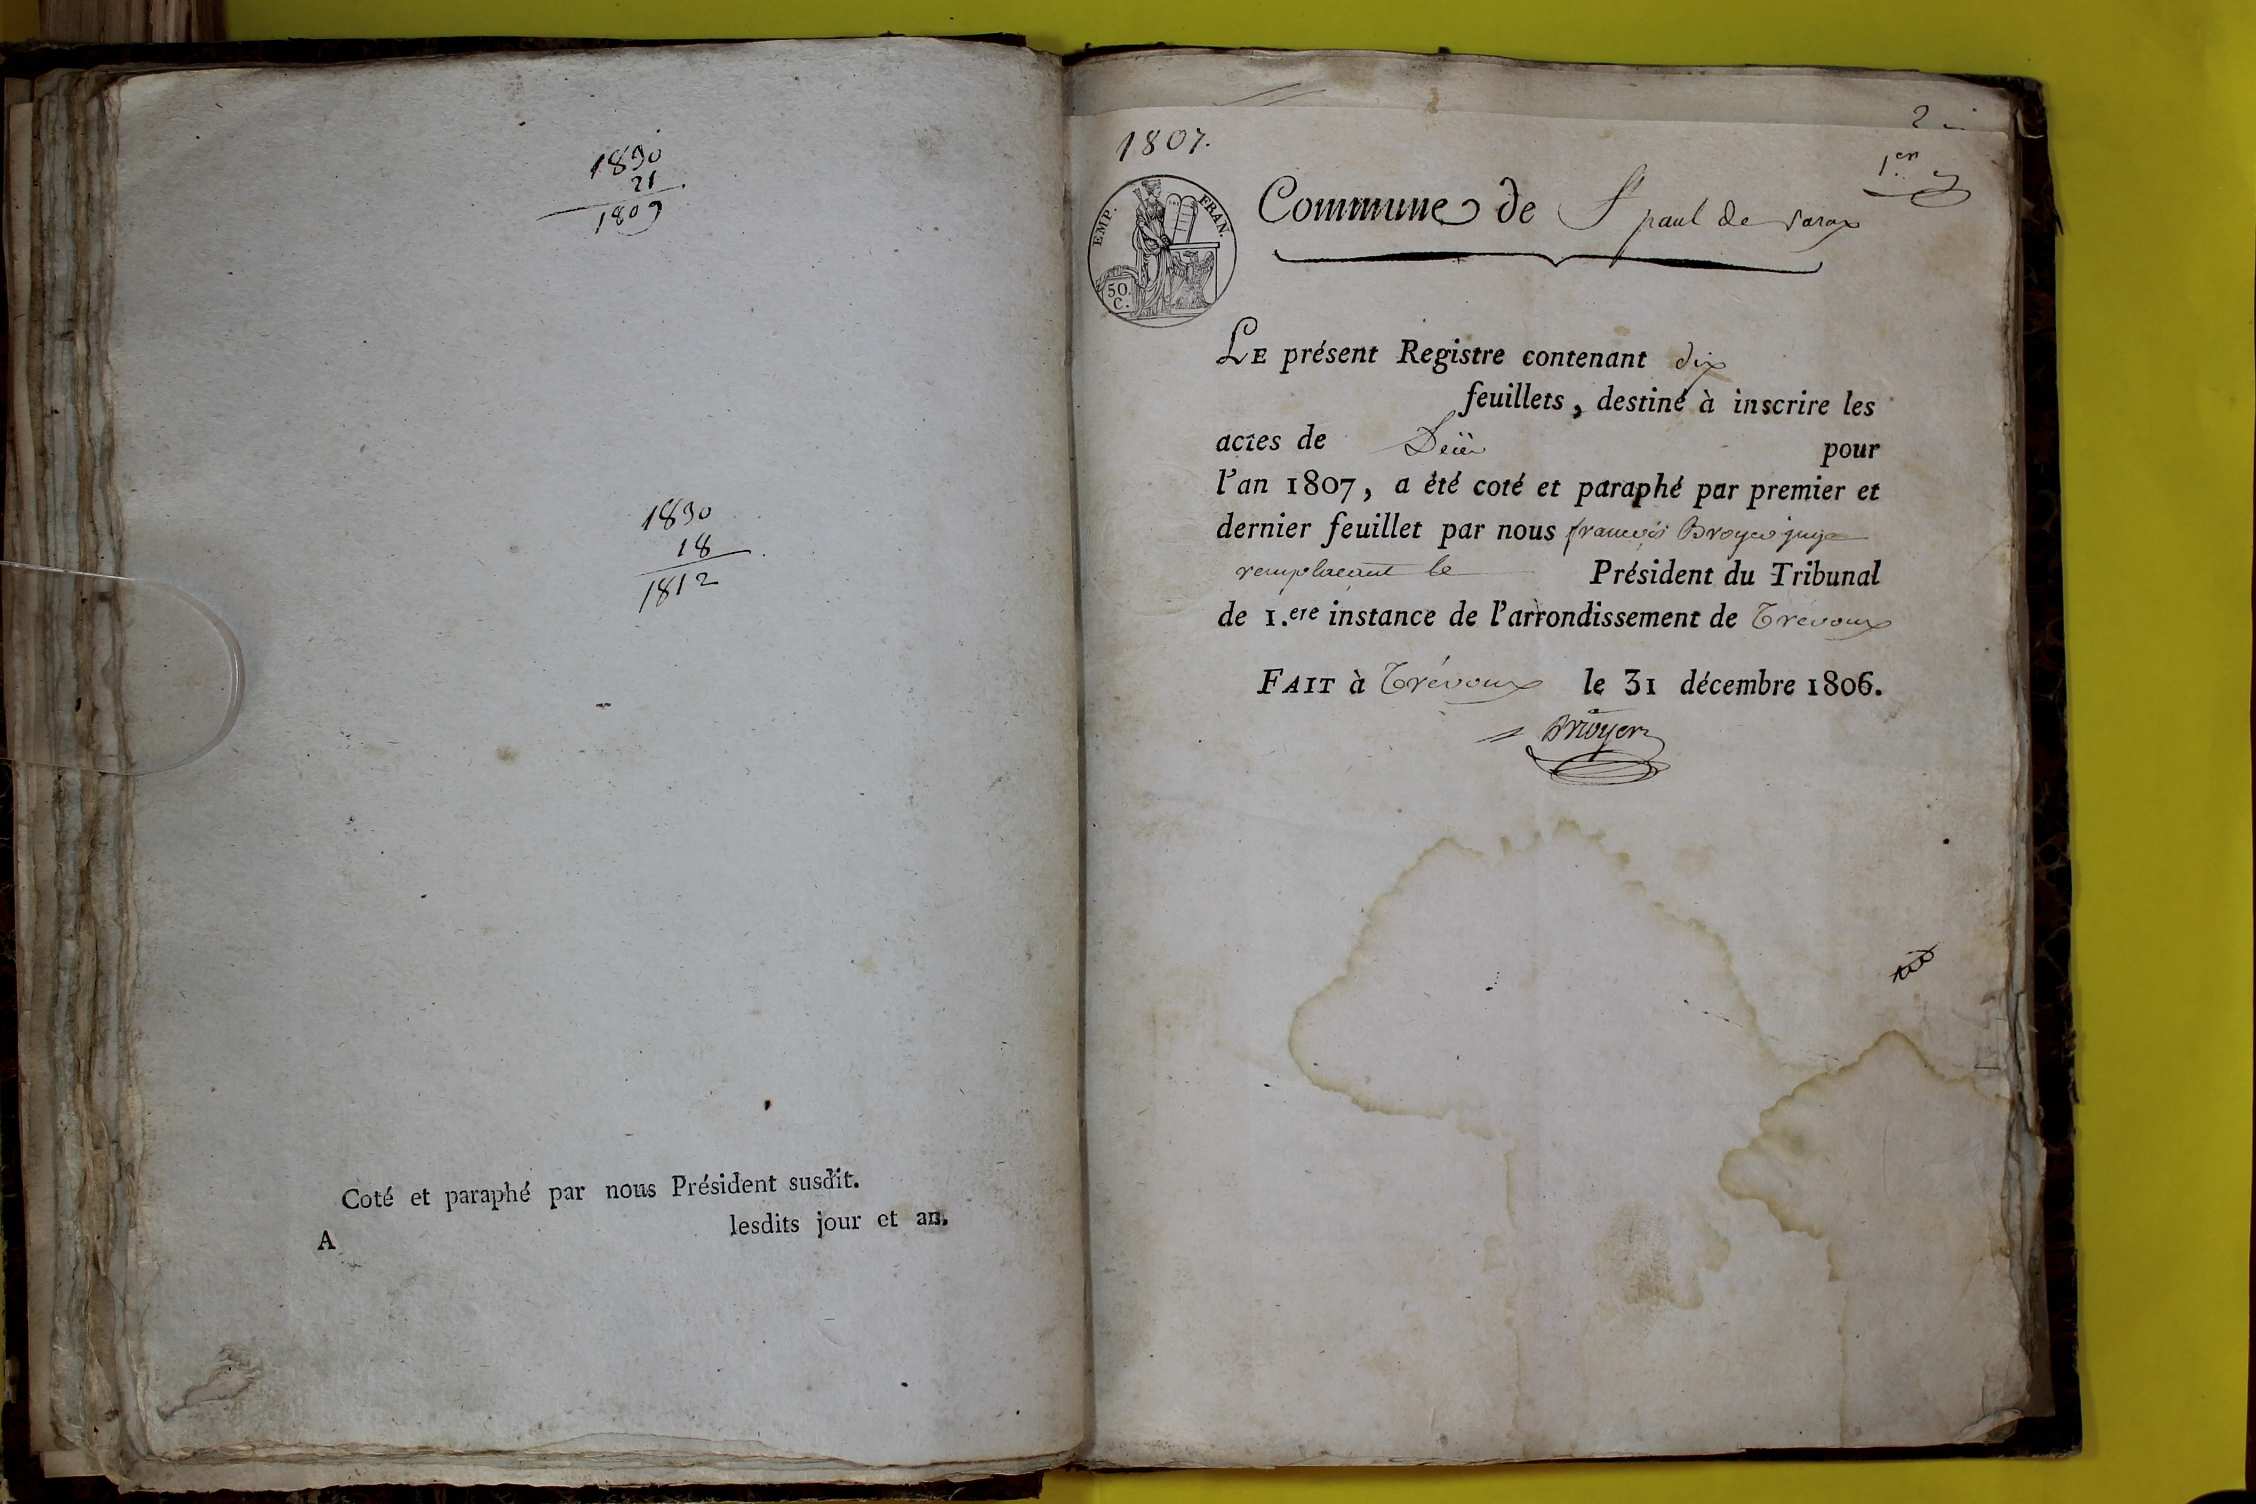 1830
21
1809
1830
18
1812
Coté et paraphé par nous Président susdit.
A lesdits jour et an.
2
1807.
1.er
EMP. FRAN.
50.
C.
Commune de St paul de varax
LE présent Registre contenant dix
feuillets, destiné à inscrire les
actes de pour
l'an 1807, a été coté et paraphé par premier et
dernier feuillet par nous francois Broyer juge
remplacant le Président du Tribunal
de 1.ere instance de l'arrondissement de Trévoux
FAIT à Trévoux le 31 décembre 1806.
Broyer